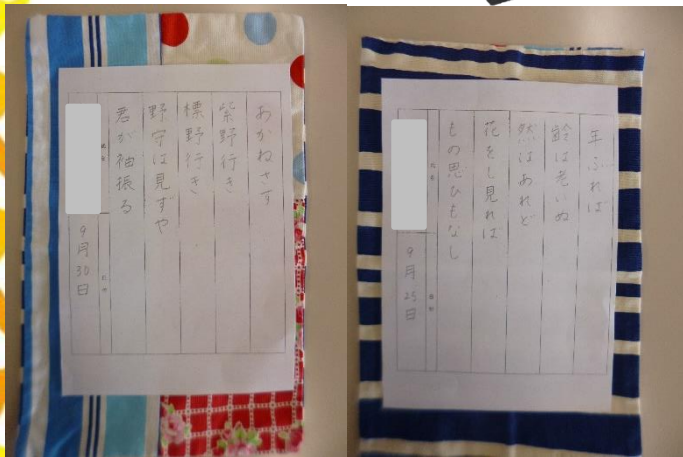 あかねさす
紫野行き
標野行き
野守は見ずや
君が袖振る
9月30日
年ふれば
齢は老いぬ
然はあれど
花をし見れば
もの思ひもなし
9月25日